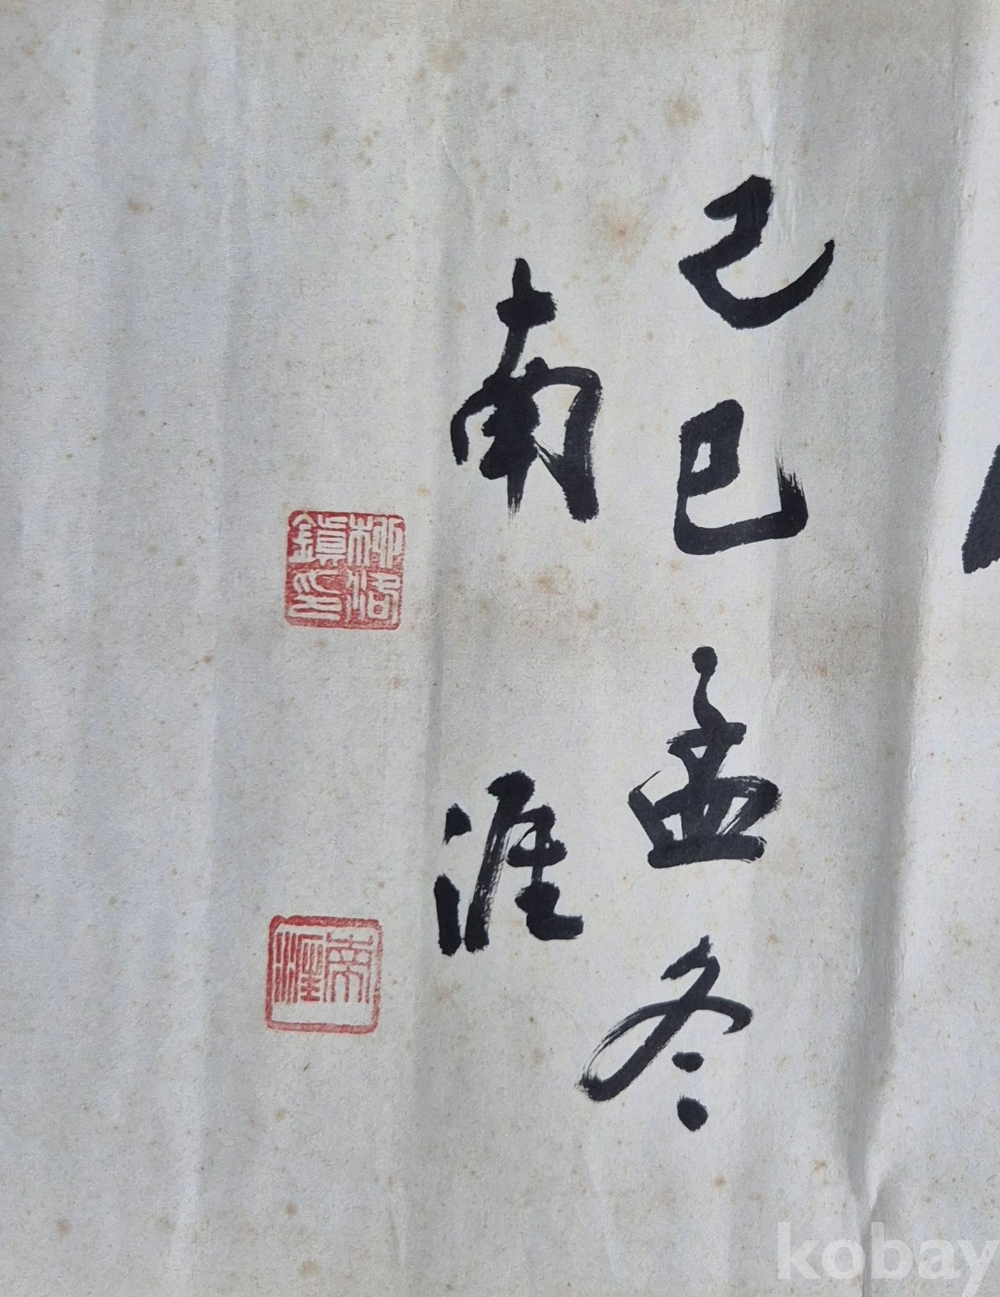 己巳孟冬
南涯
柳洛鎭印
南涯
kobay